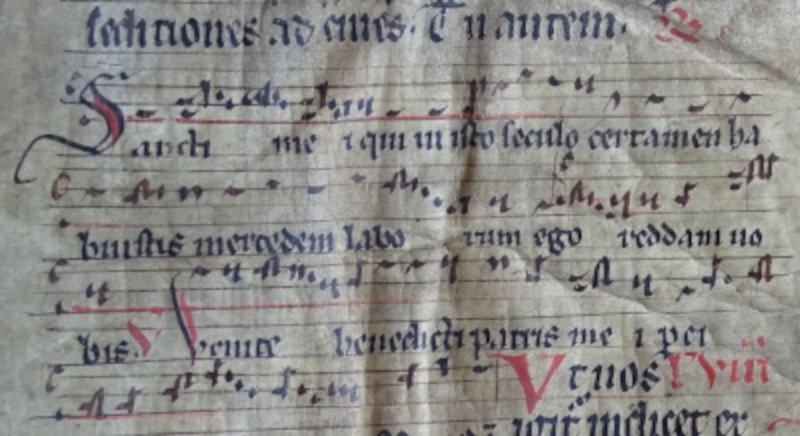 lectiones ad cives. Tu autem. R
Sancti me i qui in isto seculo certamen ha
buistis mercedem labo rum ego reddam uo
bis. V Venite benedicti patris me i pei
Vt uos lviii